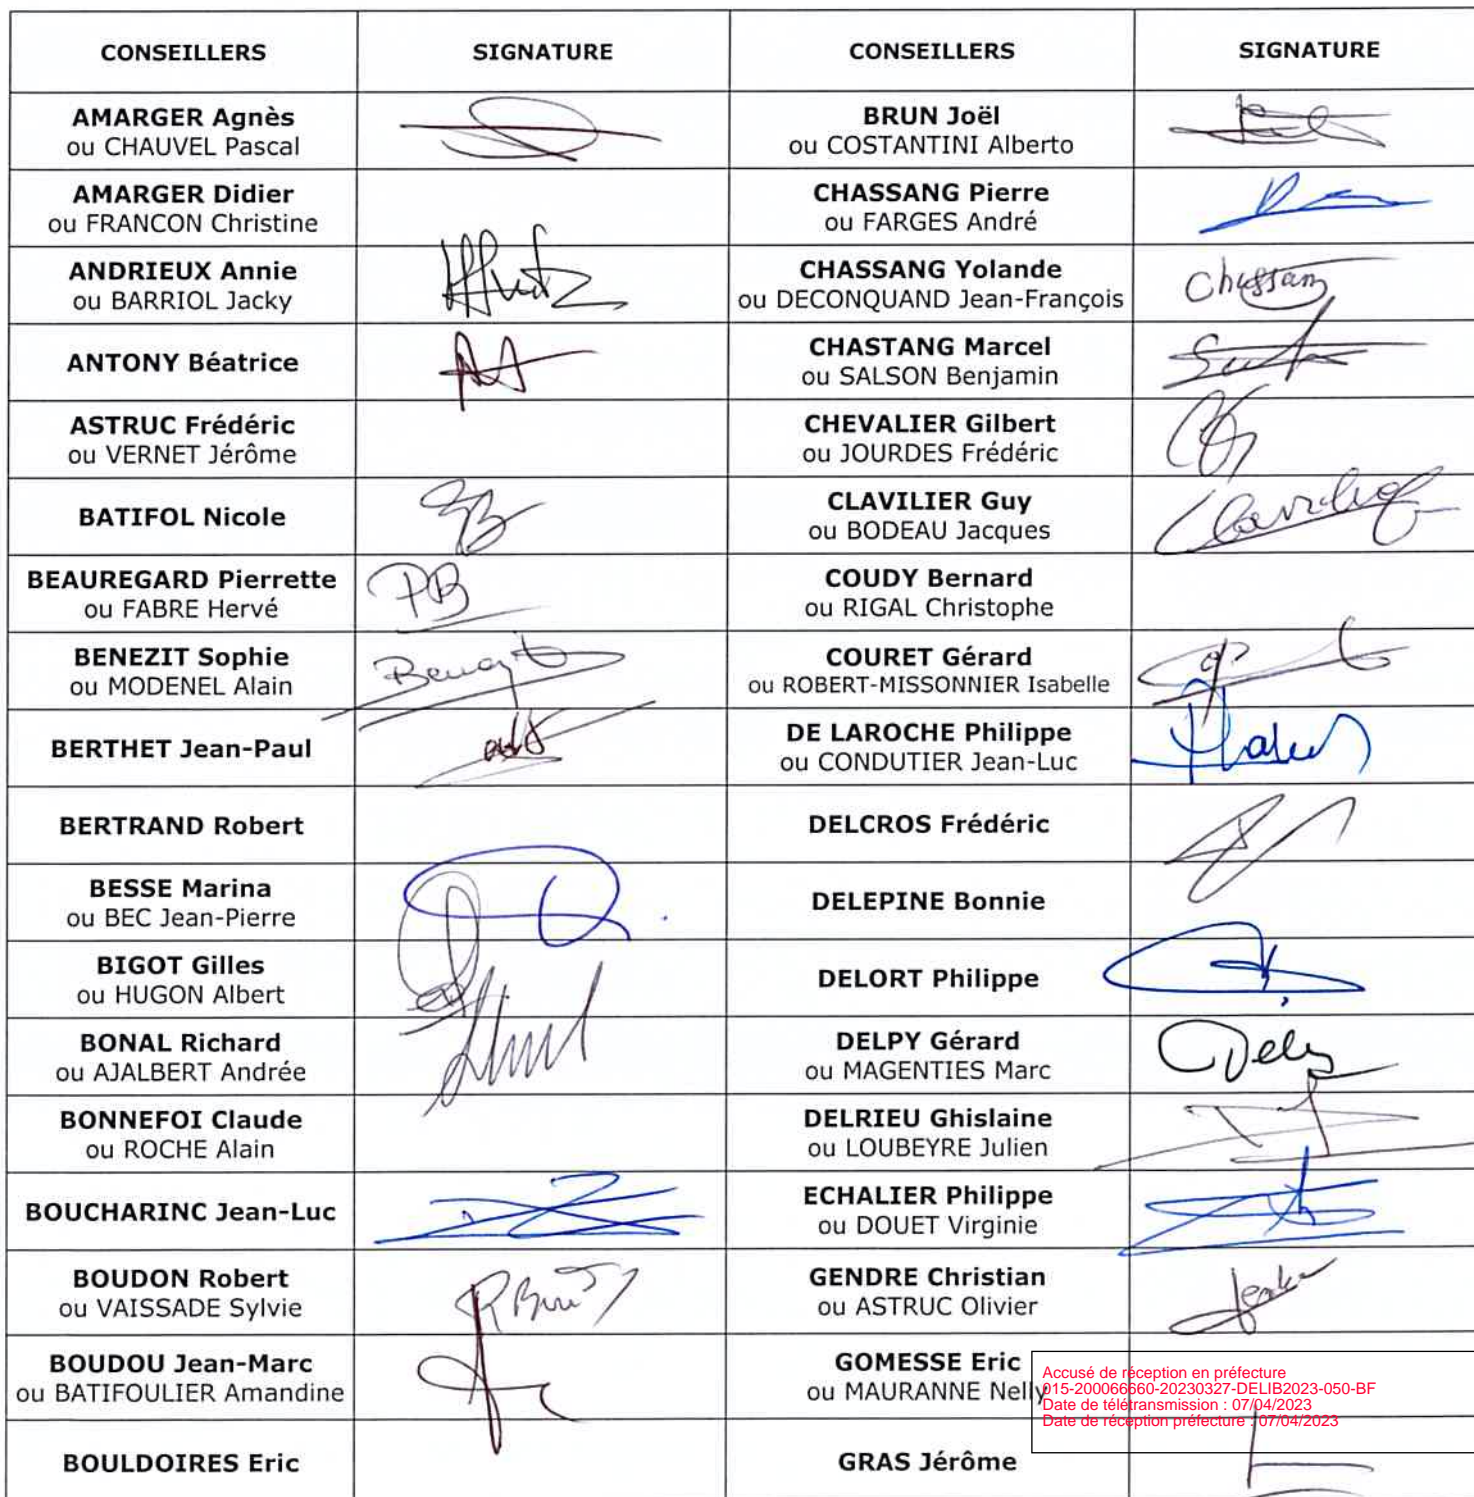 CONSEILLERS SIGNATURE CONSEILLERS SIGNATURE
AMARGER Agnès
ou CHAUVEL Pascal
BRUN Joël
ou COSTANTINI Alberto
AMARGER Didier
ou FRANCON Christine
CHASSANG Pierre
ou FARGES André
ANDRIEUX Annie
ou BARRIOL Jacky
CHASSANG Yolande
ou DECONQUAND Jean-François
Chassang
ANTONY Béatrice
CHASTANG Marcel
ou SALSON Benjamin
ASTRUC Frédéric
ou VERNET Jérôme
CHEVALIER Gilbert
ou JOURDES Frédéric
BATIFOL Nicole
CLAVILIER Guy
ou BODEAU Jacques
Clavilier
BEAUREGARD Pierrette
ou FABRE Hervé
PB
COUDY Bernard
ou RIGAL Christophe
BENEZIT Sophie
ou MODENEL Alain
COURET Gérard
ou ROBERT-MISSONNIER Isabelle
BERTHET Jean-Paul
DE LAROCHE Philippe
ou CONDUTIER Jean-Luc
BERTRAND Robert
DELCROS Frédéric
BESSE Marina
ou BEC Jean-Pierre
DELEPINE Bonnie
BIGOT Gilles
ou HUGON Albert
DELORT Philippe
BONAL Richard
ou AJALBERT Andrée
DELPY Gérard
ou MAGENTIES Marc
BONNEFOI Claude
ou ROCHE Alain
DELRIEU Ghislaine
ou LOUBEYRE Julien
BOUCHARINC Jean-Luc
ECHALIER Philippe
ou DOUET Virginie
BOUDON Robert
ou VAISSADE Sylvie
GENDRE Christian
ou ASTRUC Olivier
BOUDOU Jean-Marc
ou BATIFOULIER Amandine
GOMESSE Eric
ou MAURANNE Nelly
Accusé de réception en préfecture
015-200066660-20230327-DELIB2023-050-BF
Date de télétransmission : 07/04/2023
Date de réception préfecture : 07/04/2023
BOULDOIRES Eric
GRAS Jérôme